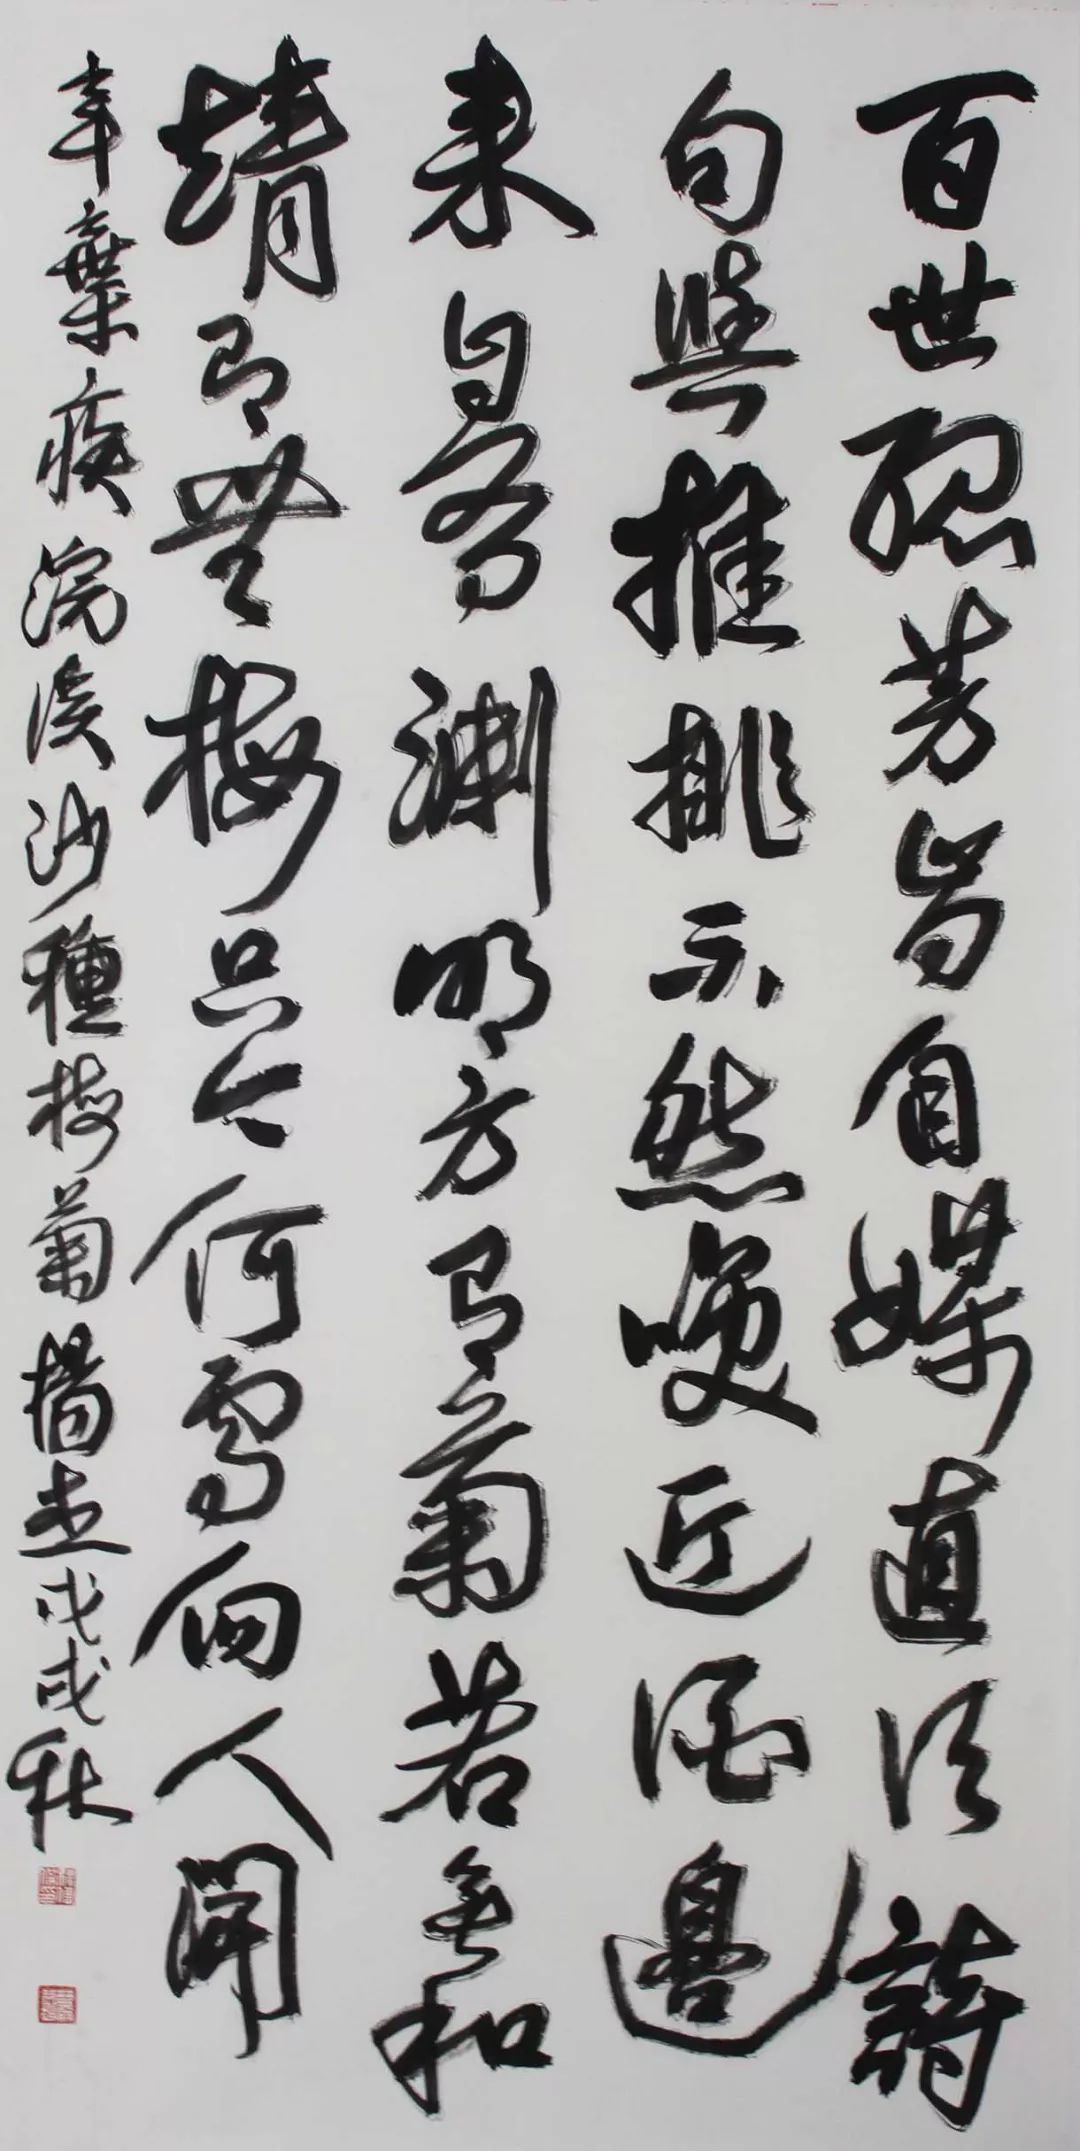 百世孤芳肯自媒直須詩
句與推排不然喚近酒邊
来自有淵明方有菊若無和
靖即無梅只今何處向人開
辛棄疾浣溪沙種梅菊楊杰戊戌秋